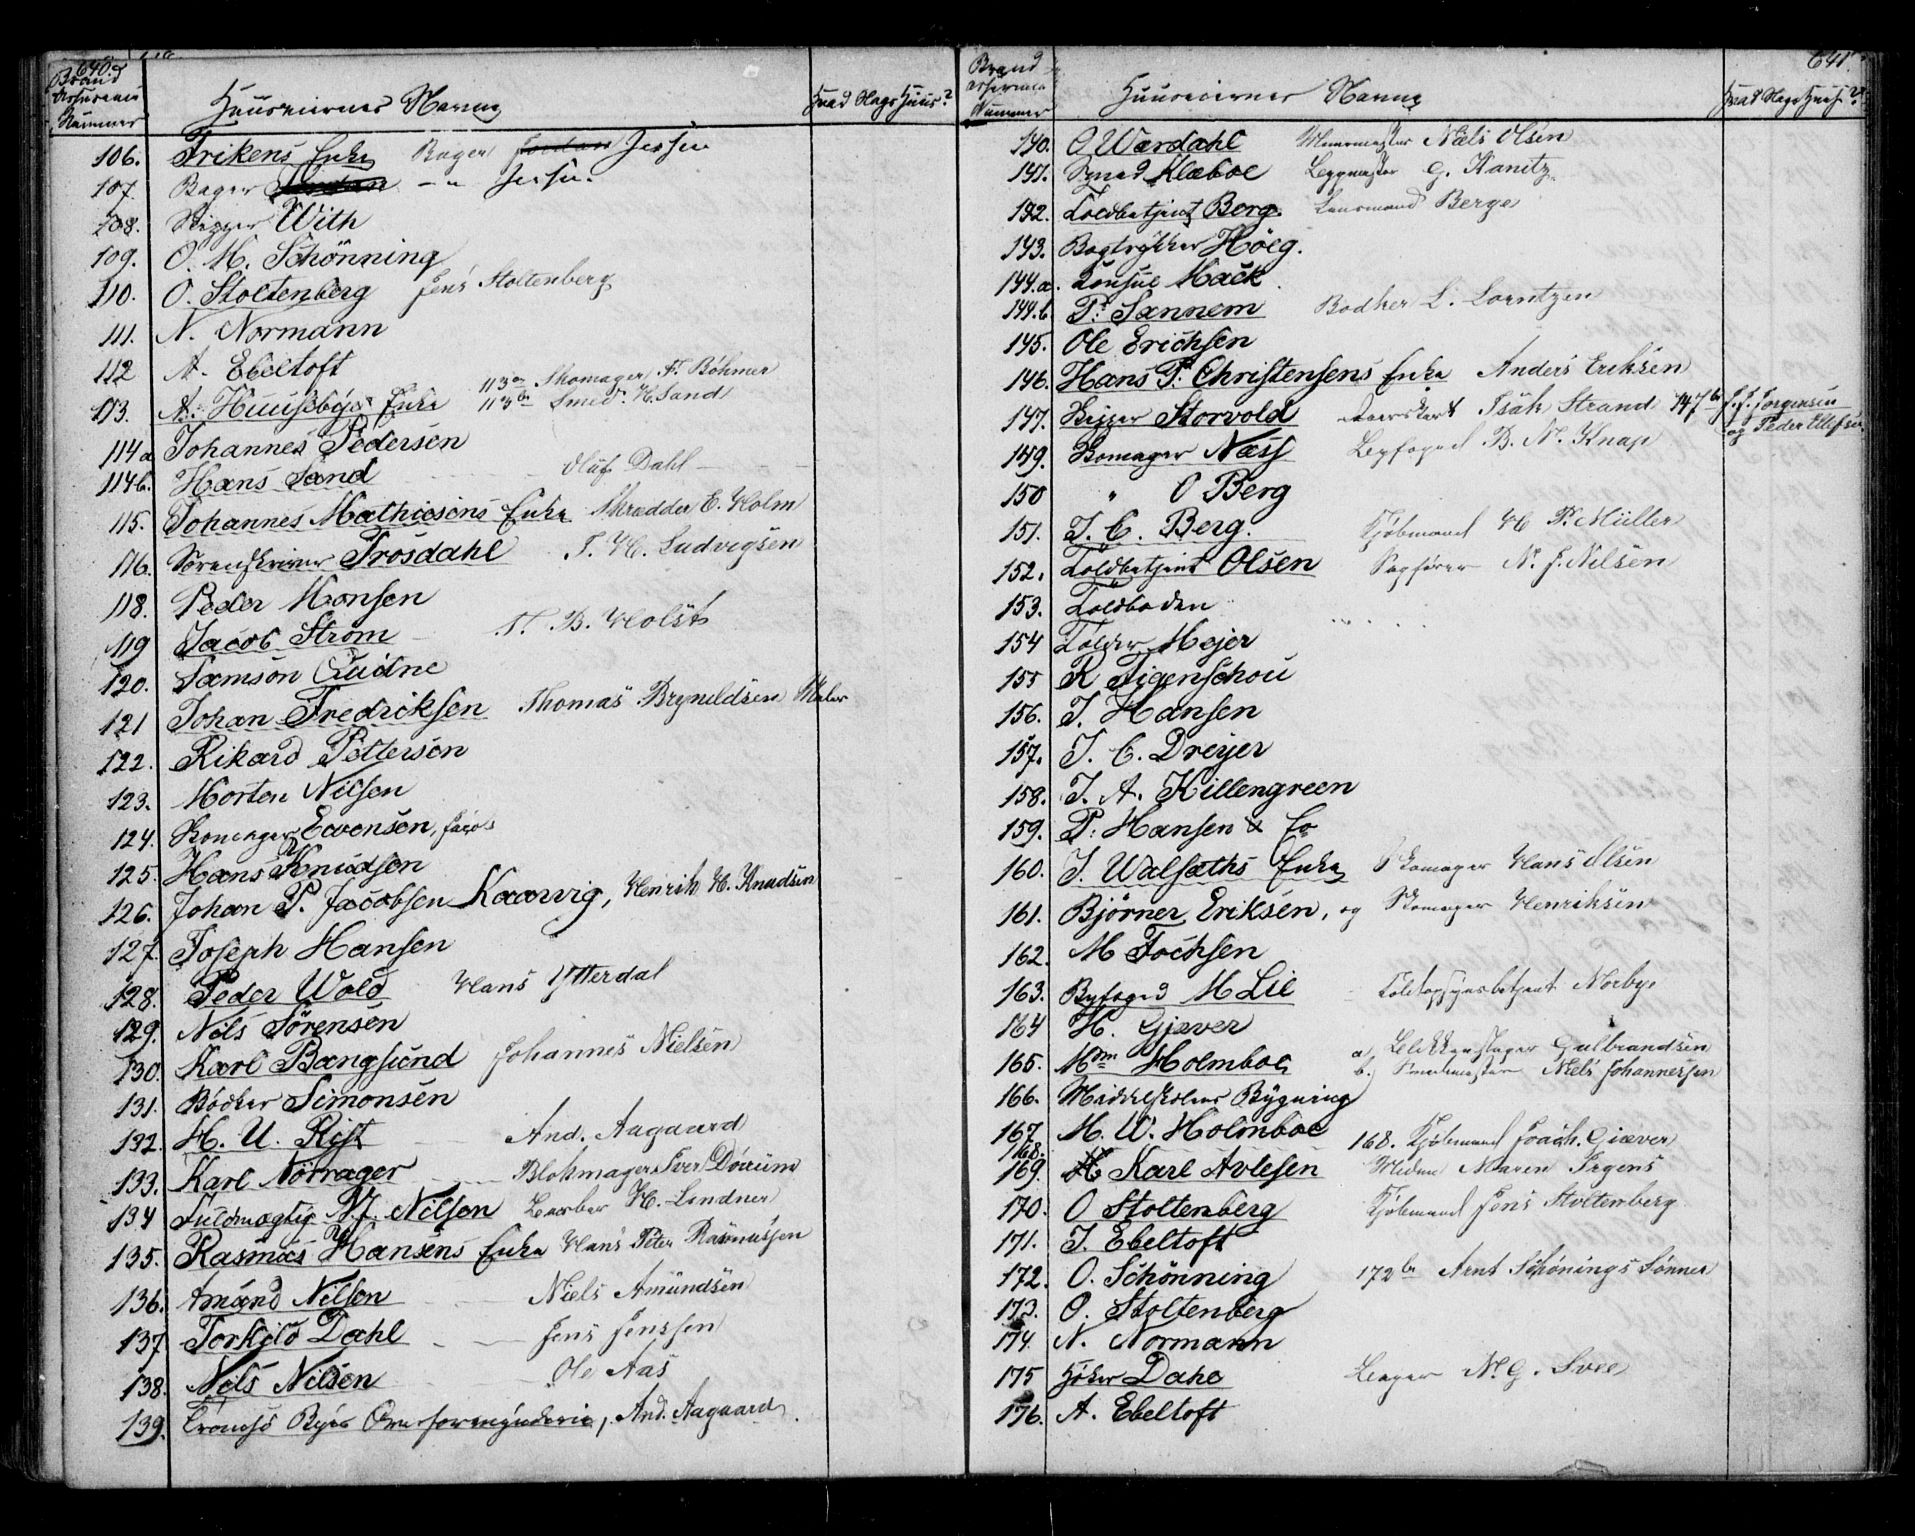 640.
Brand Assurence Nummer
Huuseiernes Navne
Hvad Slags Huus?
106. Frikens Enke Bager Jordan Jessen
107. Bager Jordan — " Jessen
108. Skipper With
109. O. M. Schönning
110. O. Stoltenberg Jens Stoltenberg
111. N. Normann
112 A. Ebeltoft
113. A. Huusebyes Enke 113a Skomager Fr. Böhmer
113b Smed H. Sand
114a Johannes Pedersen
114b. Hans Sand Oluf Dahl
115. Johannes Mathiesens Enke Skrædder E. Holm
116. Sorenskriver Trosdahl T. H. Ludvigsen
118. Peder Monsen
119 Jacob Strøm B. Holst
120. Samson Quidne
121 Johan Fredriksen Thomas Brynildsen Maler
122. Rikard Pettersen
123. Morten Nilsen
124. Skomager Evensen, Jacob
125. Hans Knudsen
126. Johan P. Jacobsen Kaarvig, Henrik H. Knudsen
127. Joseph Hansen
128. Peder Wold Hans Ytterdal
129. Nils Sørensen
130. Karl Bangsund Johannes Nielsen
131. Bødker Simonsen
132. H. U. Rist And. Aagaard
133. Karl Nörrager Blokmager Iver Dörum
134 Fuldmægtig N. J. Nilsen Barber H. Lindner
135. Rasmus Hansens Enke Hans Peter Rasmussen
136. Amund Nilsen Niels Amundsen
137 Torkild Dahl Jens Jenssen
138. Nils Nilsen Ole Aas
139. Tromsö Byes Overformynderie, And. Aagaard.
641.
Brand Assurence Nummer
Huuseiernes Navne
Hvad Slags Huus?
140. O Wardahl Muurmester Niels Olsen
141. Smed Klæboe Byggmester G. Kanitz
142. Toldbetjent Berg. Lensmand Berge
143. Bogtrykker Höeg.
144.a. Konsul Mack
144.b P. Sannem Bødker L. Lorntzen
145. Ole Erichsen
146. Hans P. Christensens Enke Anders Eriksen
147. Skipper Storvold Isak Strand 147b J. J. Jörgensen og Peder Ellefsen
149. Skomager Næss Byfoged B. M. Knap
150 " O Berg
151. J. C. Berg. Kjøbmand H P. Müller
152. Toldbetjent Olsen Sagfører N. J. Nilsen
153. Toldboden
154 Tolder Mejer
155 R Figenschou
156. J. Hansen
157. J. C. Dreyer
158. J. A. Killengreen
159. P. Hansen & Co
160. J. Walsøths Enke Skomager Hans Olsen
161. Bjørner Eriksen, og Skomager Henriksen
162. M Fochsen
163. Byfoged M Lie Toldopsynsbetjent Norbye
164 H. Gjæver
165. Mdm Holmboe a, Blikkenslager Gulbrandsen
b. Smedmester Niels Johannessen
166. Middelskolens Bygning
167 M. W. Holmboe 168. Kjøbmand Joach. Giæver
168.
169. Karl Avlesen Maren Irgens
170. O Stoltenberg Kjøbmand Jens Stoltenberg
171. J. Ebeltoft
172. O. Schönning 172b Arnt Schönings Sønner
173. O. Stoltenberg
174. N. Normann
175 Høker Dahl Bager N. G. Svee
176. A. Ebeltoft